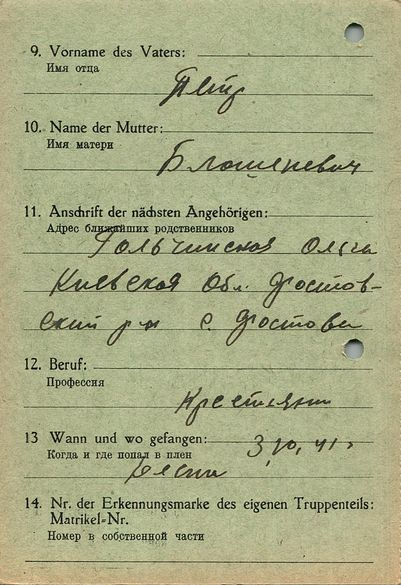 9. Vorname des Vaters:
Имя отца
Петр
10. Name der Mutter:
Имя матери
Блошеневич
11. Anschrift der nächsten Angehörigen:
Адрес ближайших родственников
Гольчинская Ольга
Киевская Обл. Фастов-
ский р-н с. Фастовец
12. Beruf:
Профессия
13 Wann und wo gefangen:
Когда и где попал в плен
3,10,41г
14. Nr. der Erkennungsmarke des eigenen Truppenteils:
Matrikel-Nr.
Номер в собственной части